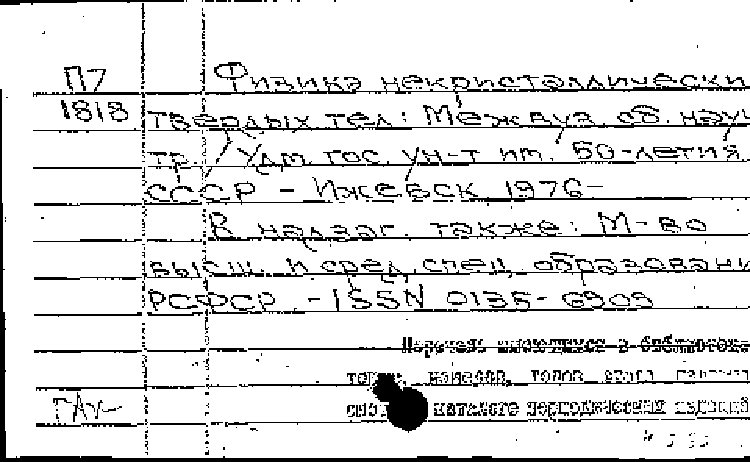 П7 Физика некристаллически
1818 твердых тел: Межвуз. сб. науч
тр. / Удм. гос. ун-т им. 50-летия
СССР - Ижевск 1976-
В надзаг. также: М-во
высш. и сред. спец. образовани
РСФСР - ISSN 0135-6909
Перечень имеющихся в библиотеке
томов, номеров, годов этого
каталоге периодических изданий